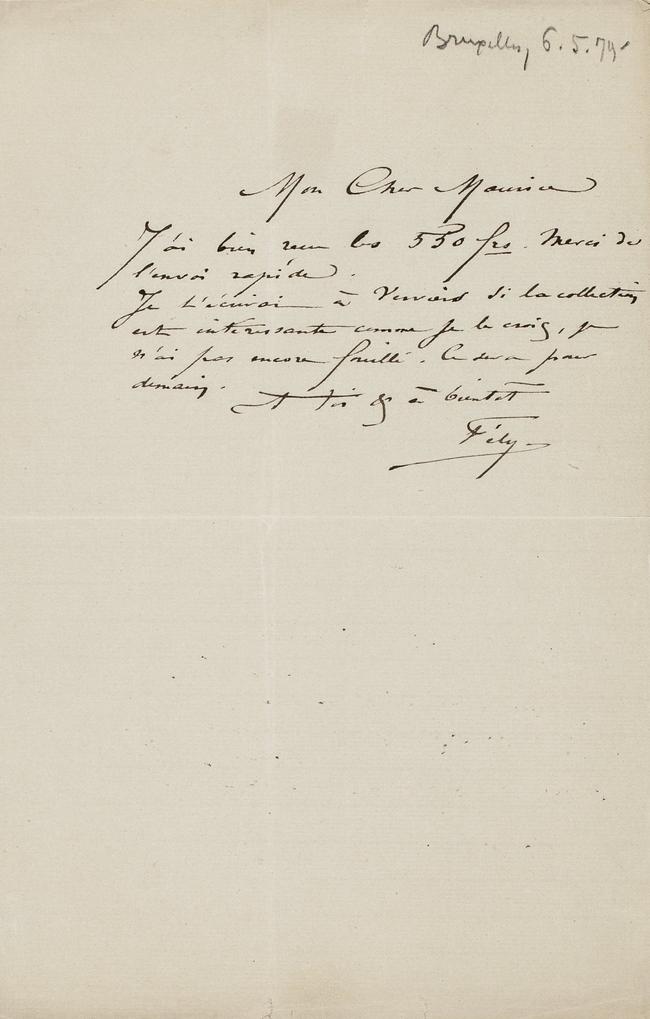 Bruxelles, 6.5.79
Mon Cher Maurice
J'ai bien reçu les 550 frs. Merci de
l'envoi rapide.
Je t'écrirai à Verviers si la collection
est intéressante comme je le crois, je
n'ai pas encore fouillé. Ce sera pour
demain.
A toi & à bientôt
Fély